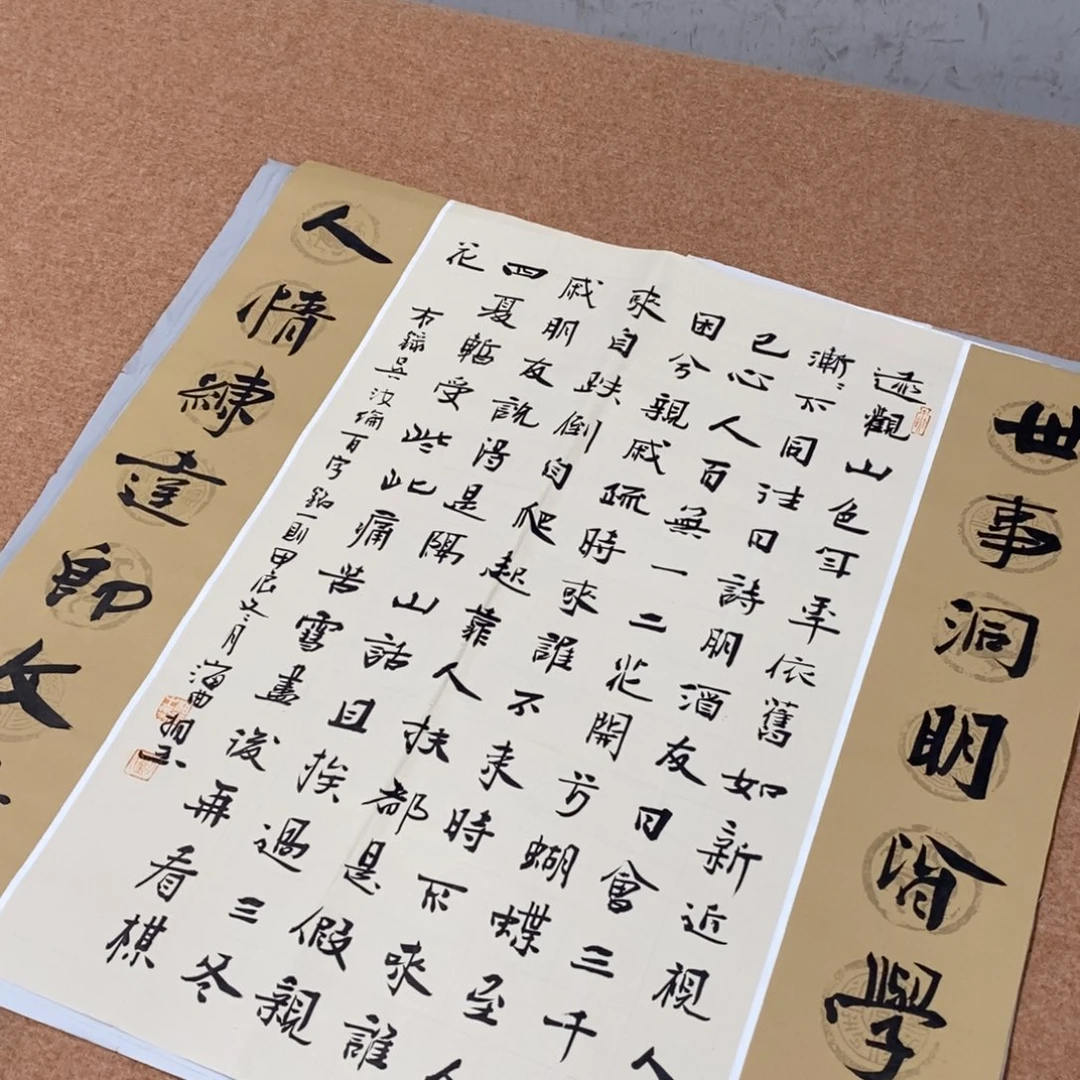 世事洞明皆學
遠觀山色年年依舊如新近視人
漸〻不同往日詩朋酒友日會三千
已心人百無一二花開兮蝴蝶至人
困兮親戚疏時來誰不來時不來誰
來自跌倒自爬起靠人扶都是假親
戚朋友說得是隔山話且挨過三冬
四夏暫受些此痛苦雪盡後再看棋
花
右錄吳汝綸百字銘一則甲辰冬月海曲
人情練達即文